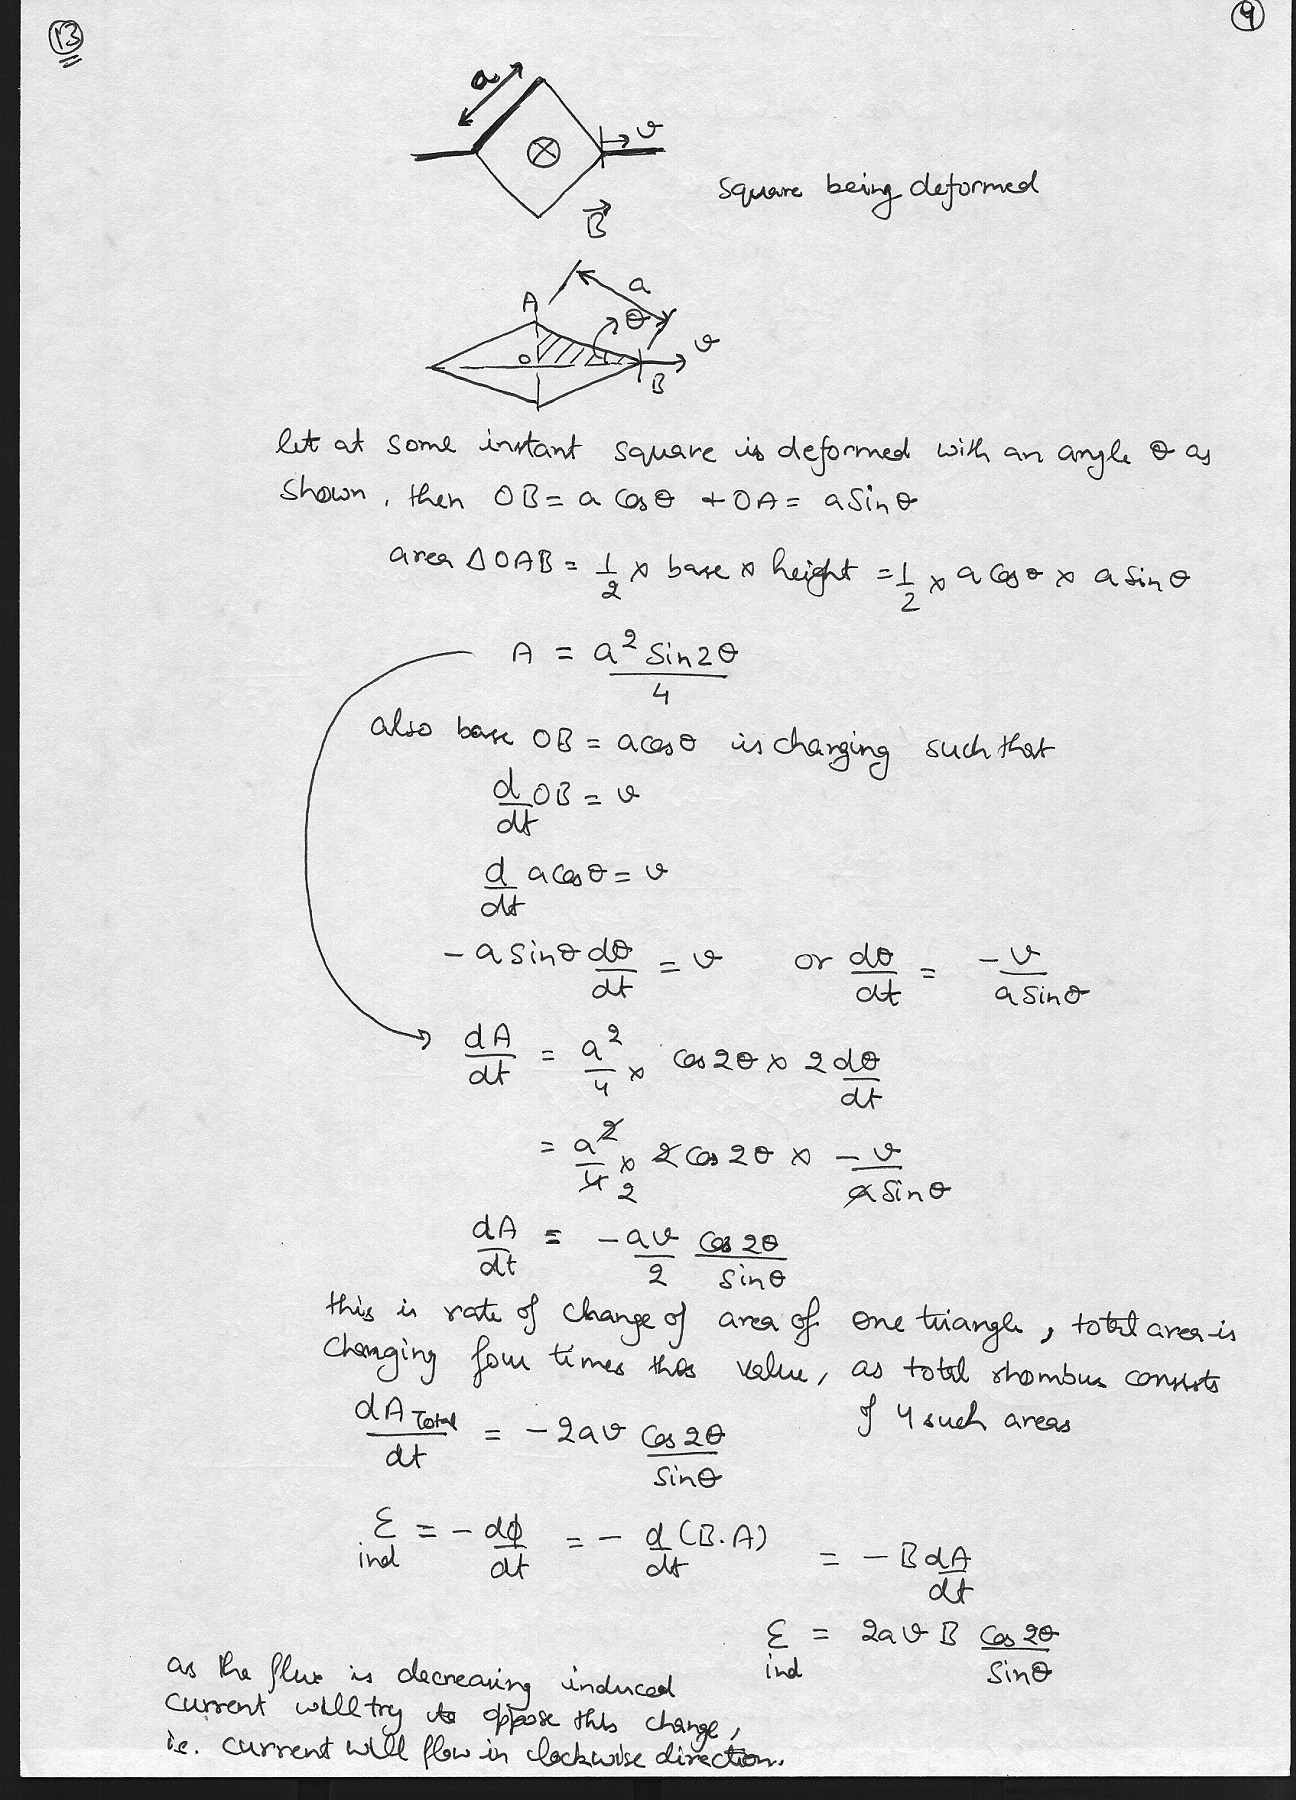 13
4
a
v
B
square being deformed
A
a
θ
v
O
B
let at some instant square is deformed with an angle θ as
shown, then OB = a cosθ + OA = a sinθ
area ΔOAB = 1/2 × base × height = 1/2 × a cosθ × a sinθ
A = a² sin2θ / 4
also base OB = a cosθ is changing such that
d/dt OB = v
d/dt a cosθ = v
- a sinθ dθ/dt = v or dθ/dt = -v / a sinθ
dA/dt = a²/4 × cos2θ × 2 dθ/dt
= a²/4 2 × 2 cos2θ × -v / a sinθ
dA/dt = -av/2 cos2θ / sinθ
this is rate of change of area of one triangle, total area is
changing four times this value, as total rhombus consists
of 4 such areas
dA Total/dt = -2av cos2θ / sinθ
ε ind = - dϕ/dt = - d/dt (B.A) = - B dA/dt
ε ind = 2avB cos2θ / sinθ
as the flux is decreasing induced
current will try to oppose this change,
i.e. current will flow in clockwise direction.